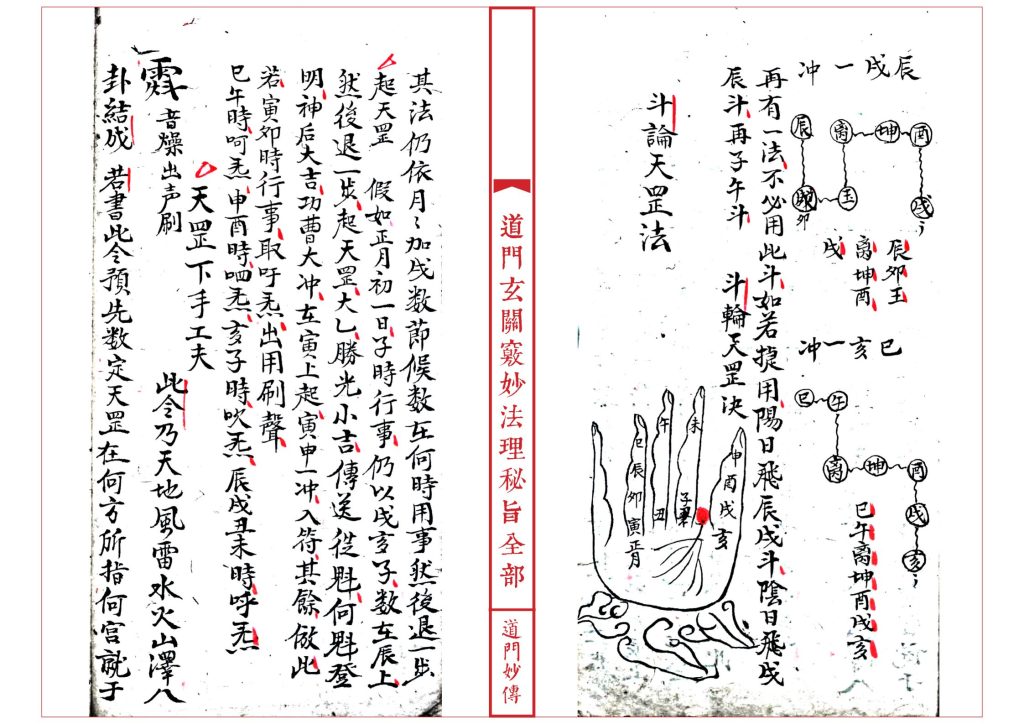 辰戌一冲
辰
离
坤
酉
卯
戌
辰卯玉
离坤酉
戌
巳亥一冲
巳
午
离
坤
酉
戌
亥
巳午离坤酉戌亥
再有一法不必用此斗如若捷用陽日飛辰戌斗陰日飛戌
辰斗再子午斗
斗輪天罡決
斗論天罡法
申酉戌亥
未
午
巳辰卯寅正月
丑
子
道門玄關竅妙法理秘旨全部
道門妙傳
其法仍依月〻加戌数節候数在何時用事然後退一步
起天罡 假如正月初一日子時行事仍以戌亥子数在辰上
然後退一步起天罡大乙勝光小吉傳送從魁何魁登
明神后大吉功曹大冲在寅上起寅申一冲入符其餘倣此
若寅卯時行事取吁炁出用刷聲
巳午時呵炁申酉時呬炁亥子時吹炁辰戌丑未時呼炁
天罡下手工夫
音燥出声刷
此令乃天地風雷水火山澤八
卦結成 若書此令預先数定天罡在何方所指何宮就于